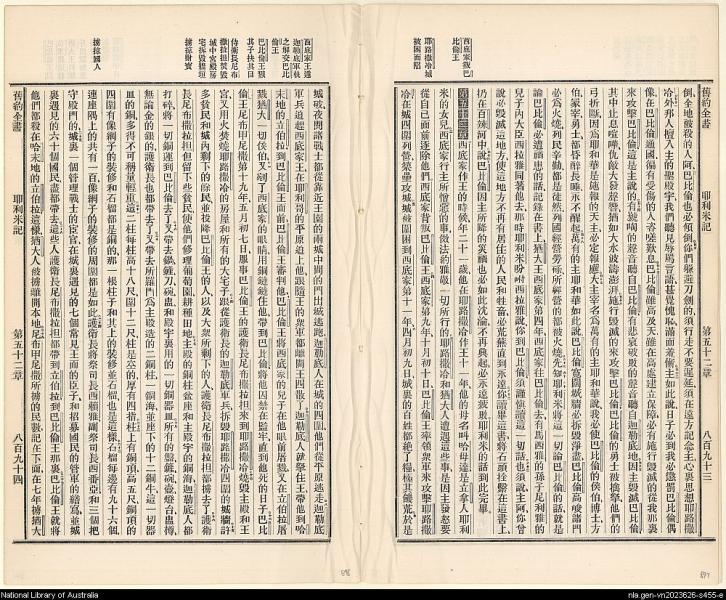 舊約全書 耶利米記 第五十二章 八百九十三
西底家叛巴比倫王
耶路撒冷城被困而陷
倒全地被殺的人阿巴比倫也必傾倒你們躲避刀劍的須行走不要遲延須在遠方記念主心裏思想耶路撒
冷外邦人擅入主的聖殿宇我們聽見辱罵言語甚覺愧恥滿面羞慚主如此說日子必到我必懲罰巴比倫偶
像在巴比倫通國徧有受傷的人哀嗟歎息巴比倫雖高及天雖在高處建立保障必有施行毀滅的從我那裏
來攻擊巴比倫這是主說的有號咷的聲音聽自巴比倫有悲哀破敗的聲音聽自迦勒底地因主毀滅巴比倫
其中止息喧嘩仇敵大發聲猶如大水波濤澎湃施行毀滅的來攻擊巴比倫巴比倫的勇士被擒拏他們的
弓折斷因為耶和華是施報的天主必定報應大主宰名為萬有的主耶和華說我必使巴比倫的侯伯博士方
伯冢宰勇士都昏醉長睡永不醒起萬有的主耶和華如此說巴比倫寬闊城牆必拆毀淨盡巴比倫高峻諸門
必為火燒列民辛勤都是徒然列國經營勞碌所經營的都被火燒先知耶利米將這一切論巴比倫的話就是
論巴比倫必遭禍患的話記錄在書上猶大王西底家第四年西底家往巴比倫去有馬西雅的孫子尼利雅的
兒子內大臣西拉雅同著他去那時耶利米吩咐西拉雅說你到巴比倫須謹慎讀這一切話也須說主阿你曾
說必毀滅這地方使這地方不再有居住的人民和牲畜必荒蕪直到永遠你讀畢這書將石頭拴繫在這書上
扔在百辣河中說巴比倫因主所降的災禍也必如此沈淪不再興起必永遠疲憊耶利米的話到此完畢
第五十二章 西底家作王的時候年二十一歲他在耶路撒冷作王十一年他的母名叫哈母達是立拿人耶利
米的女兒西底家行主所憎惡的事傚法約雅敬一切所行的耶路撒冷和猶大人遭遇這些事是因主發怒要
從自己面前逐除他們西底家背叛巴比倫王西底家第九年十月初十日巴比倫王率領眾軍來攻擊耶路撒
冷在城四圍列營築壘攻城城被圍困到西底家第十一年四月初九日城裏的百姓都絕了糧極其饑荒於是
舊約全書 耶利米記 第五十二章 八百九十四
西底家王逃迦勒底軍執之解交巴比倫王
巴比倫王戮其子抉其目
侍衛長尼布撒拉但焚毀城中宮殿房宅拆毀牆垣擄掠財寶
擄掠國人
城破夜間諸戰士都從靠近王園的兩城中間的門出城逃跑迦勒底人在城的四圍他們從平原逃走迦勒底
兵追趕西底家王在耶利哥的平原追上他跟隨王的眾軍都離開王四散了迦勒底人就拏住王帶他到哈
末地的立伯拉到巴比倫王面前巴比倫王審判他巴比倫王將西底家的兒子在他眼前殺戮又在立伯拉屠
戮猶大一切侯伯又剜了西底家的眼睛用銅鏈鎖住他帶到巴比倫將他囚禁在監牢直到他死的日子巴比
倫王尼布甲尼撒第十九年五月初七日服事巴比倫王的護衛長尼布撒拉但來到耶路撒冷燒毀主殿和王
宮又用火焚燒耶路撒冷的房屋和所有的大宅子跟從護衛長的迦勒底軍兵拆毀耶路撒冷四圍的城牆許
多貧民和城內剩下的餘民並投降巴比倫王的人以及大眾所剩下的人護衛長尼布撒拉但都擄去了護衛
長尼布撒拉但但留下些貧民使他們修理葡萄園耕種田地主殿的銅柱盆座和主殿宇的銅海迦勒底人都
打碎將一切銅運到巴比倫去了又帶去鍋鏟刀碗盅和殿宇裏用的一切銅器皿所有的
無論金的銀的護衛長也都帶去了又帶去所羅門為主殿造的二銅柱一銅海並座下的十二銅牛這一切器
皿的銅多得不可稱量輕重這二柱每柱高十八尺圍十二尺柱是空的厚有四指柱上有銅頂高五尺銅頂的
四圍有像網子的裝修和石榴都是銅的那一根柱子和其上的裝修並石榴也是這樣石榴每邊有九十六個
連座隅上的共有一百像網子的裝修的周圍都是如此護衛長將祭司長西賴雅副祭司長西番亞和三個把
守殿門的城裏一個管理戰士的宦官在城裏遇見的七個常見王面的臣子和招募國民的管軍的繕寫並城
裏遇見的六十個國民盡都帶去這些人護衛長尼布撒拉但都帶到立伯拉到巴比倫王那裏巴比倫王就將
他們都殺在哈末地的立伯拉這樣猶大人被擄離開本地尼布甲尼撒所擄的民數記在下面在七年擄猶大
National Library of Australia
nla.gen-vn2023626-s455-e